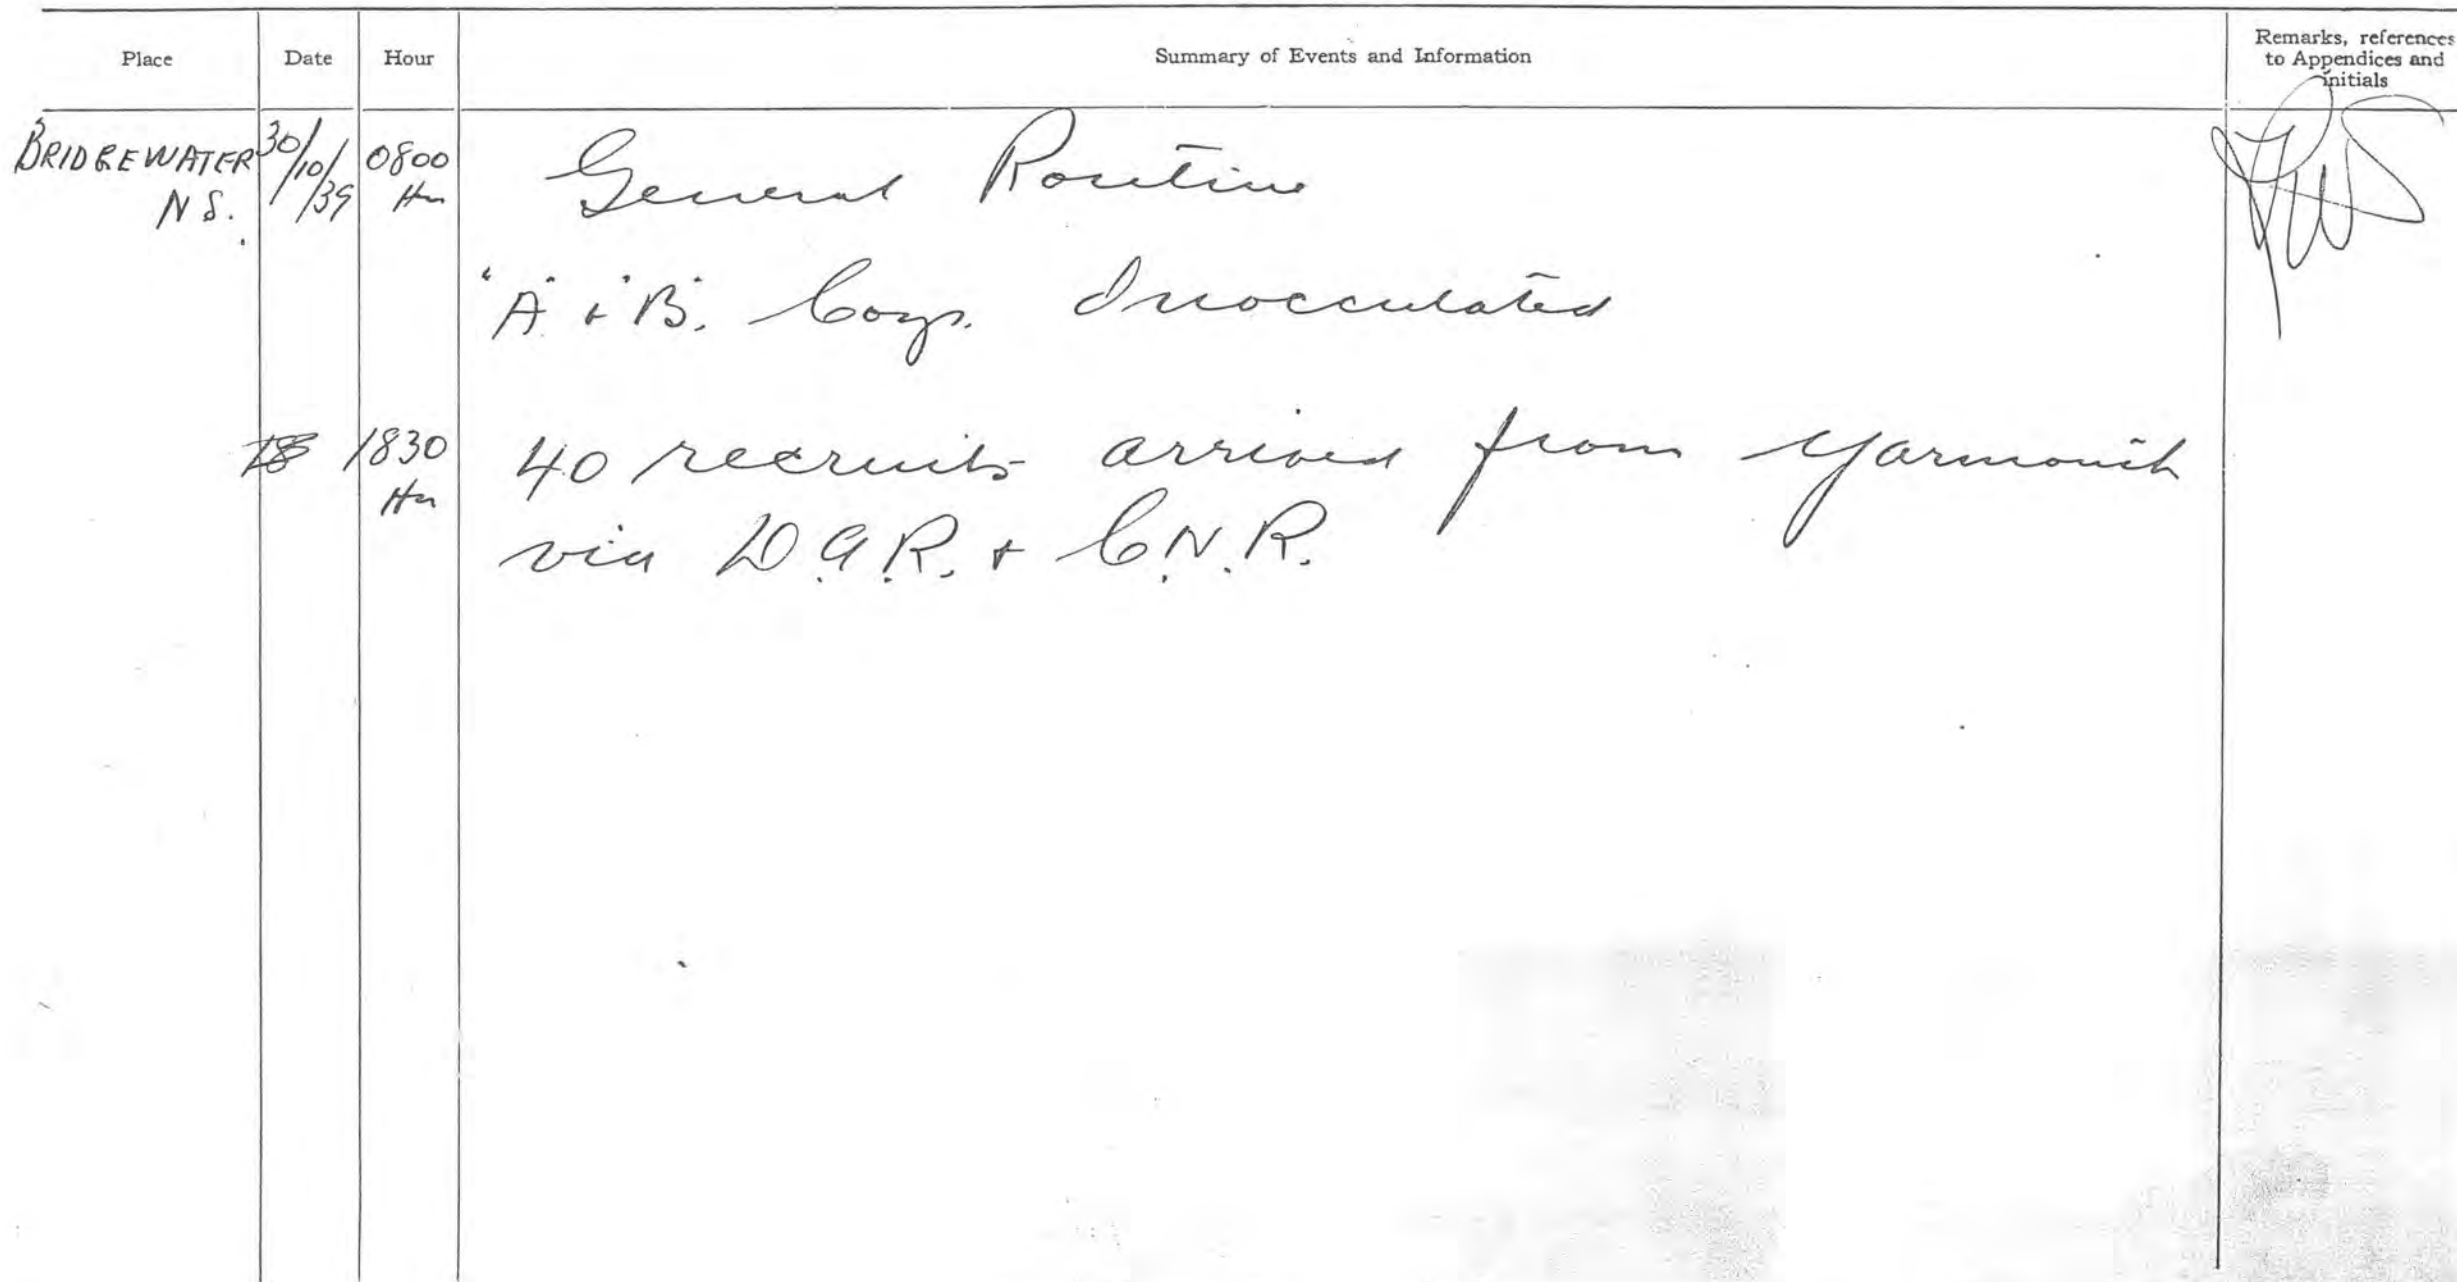 Place Date Hour Summary of Events and Information Remarks, references
to Appendices and
initials
BRIDGEWATER 30/10/39 0800 General Routine
N S. Hrs
"A" + "B". Coys. Innocculated
1830 40 recruits arrived from Yarmouth
Hrs via D.A.R. + C.N.R.